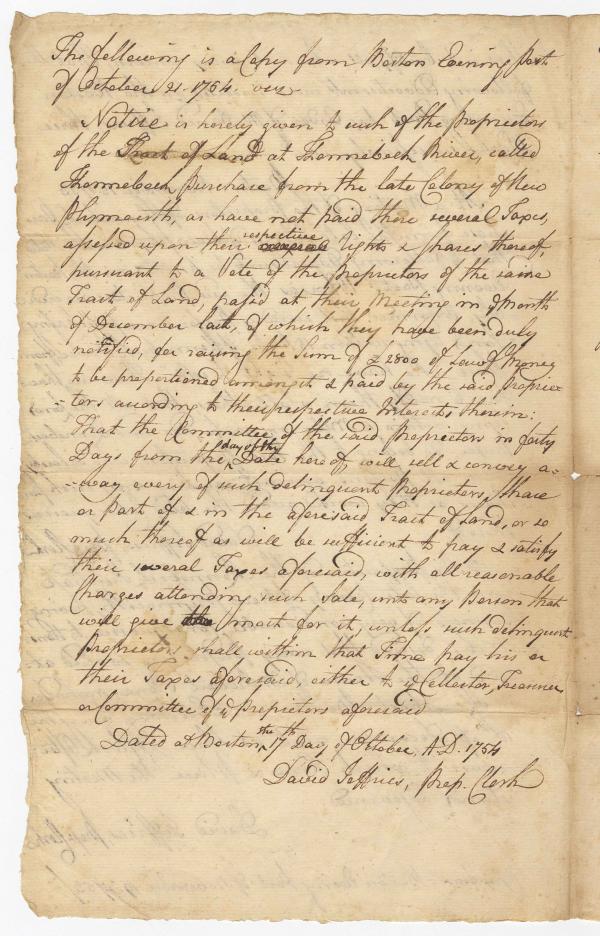 The following is a Copy from Boston Evening Post
of October 21. 1754. viz
Notice is hereby given to such of the Proprietors
of the Tract of Land at Kennebeck River, called
Kennebeck Purchase from the late Colony of New
Plymouth, as have not paid their several Taxes,
assessed upon their respective Rights & Shares thereof,
pursuant to a Vote of the Proprietors of the same
Tract of Land, passed at their Meeting in ye Month
of December last, of which they have been duly
notified, for raising the Sum of £2800 of Lawfl Money
to be proportioned amongst & paid by the said Proprie-
-tors according to their respective Interests therein:
That the Committee of the said Proprietors in forty
Days from the day of the Date hereof, will sell & convey a-
-way every of such delinquent Proprietors, Share
or Part of & in the aforesaid Tract of Land, or so
much thereof as will be sufficient to pay & satisfy
their several Taxes aforesaid, with all reasonable
Charges attending such Sale, unto any Person that
will give most for it, unless such delinquent
Proprietors shall within that Time pay his or
their Taxes aforesaid, either to ye Collector, Treasurer
or Committee of ye Proprietors aforesaid
Dated at Boston the 17th Day of October, A.D. 1754
David Jeffries, Prop. Clerk